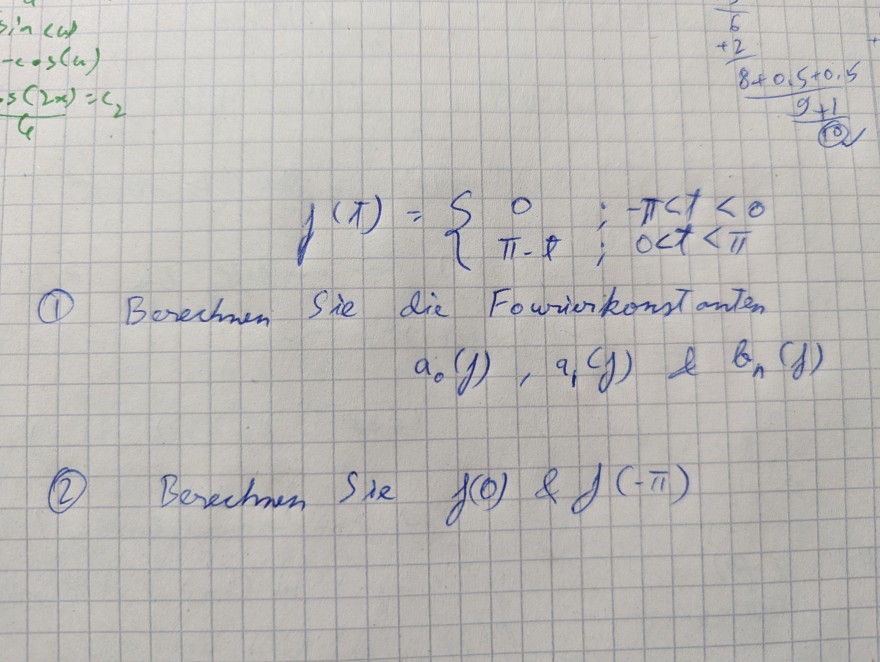 sin(u)
-cos(u)
os(2x) = c₂
6
6
+2
8+0.5+0.5
9+1
10
f(t) = { 0 ; -π<t<0
π-t ; 0<t<π
① Berechnen Sie die Fourierkonstanten
a₀(f), a₁(f) & bₙ(f)
② Berechnen Sie f(0) & f(-π)